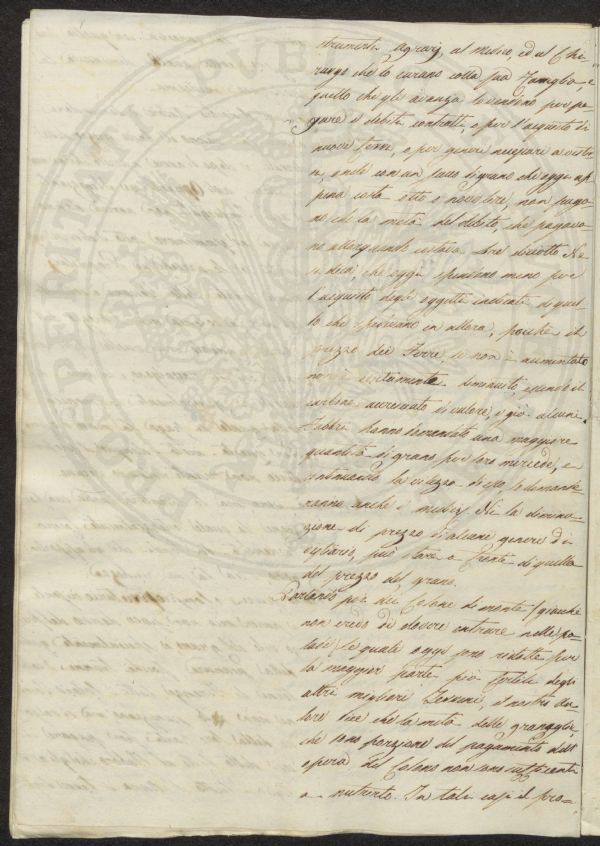 strumenti agrarj, al medico, ed al Chi-
rurgo che lo curano colla sua Famiglia, e
quello che gli avanza lo vendono per pa-
gare i debiti contratti, o per l'acquisto di
nuove terre, o per generi necessarj a vestir-
si, onde con un sacco di grano che oggi ap-
pena costa otto o nove lire, non paga-
no che la metà del debito, che pagava-
no allorquando costava Lire diciotto. Ne
si dica, che oggi spendono meno per
l'acquisto degli oggetti indicati di quel-
lo che spendeano in allora, poiché il
prezzo dei Ferri se non è aumentato
non è certamente diminuito, essendo il
carbone accresciuto di valore, e già alcuni
Fabbri hanno domandato una maggiore
quantità di grano per loro mercede, e
continuando la viltezza di esso, lo domande-
ranno anche i medici. Ne la diminu-
zione di prezzo di alcuni generi di
vestiario, può stare a fronte di quella
del prezzo del grano.
Parlando poi dei Coloni di monte (giacché
non credo di dovere entrare nelle pa-
ludi, le quali oggi sono ridotte per
la maggior parte più fertili degli
altri migliori Terreni, il nostro da-
tore dice che la metà delle granaglie,
che sono porzione del pagamento dell'
opera del Colono non sono sufficienti
a nutrirlo. In tali casi il pro-